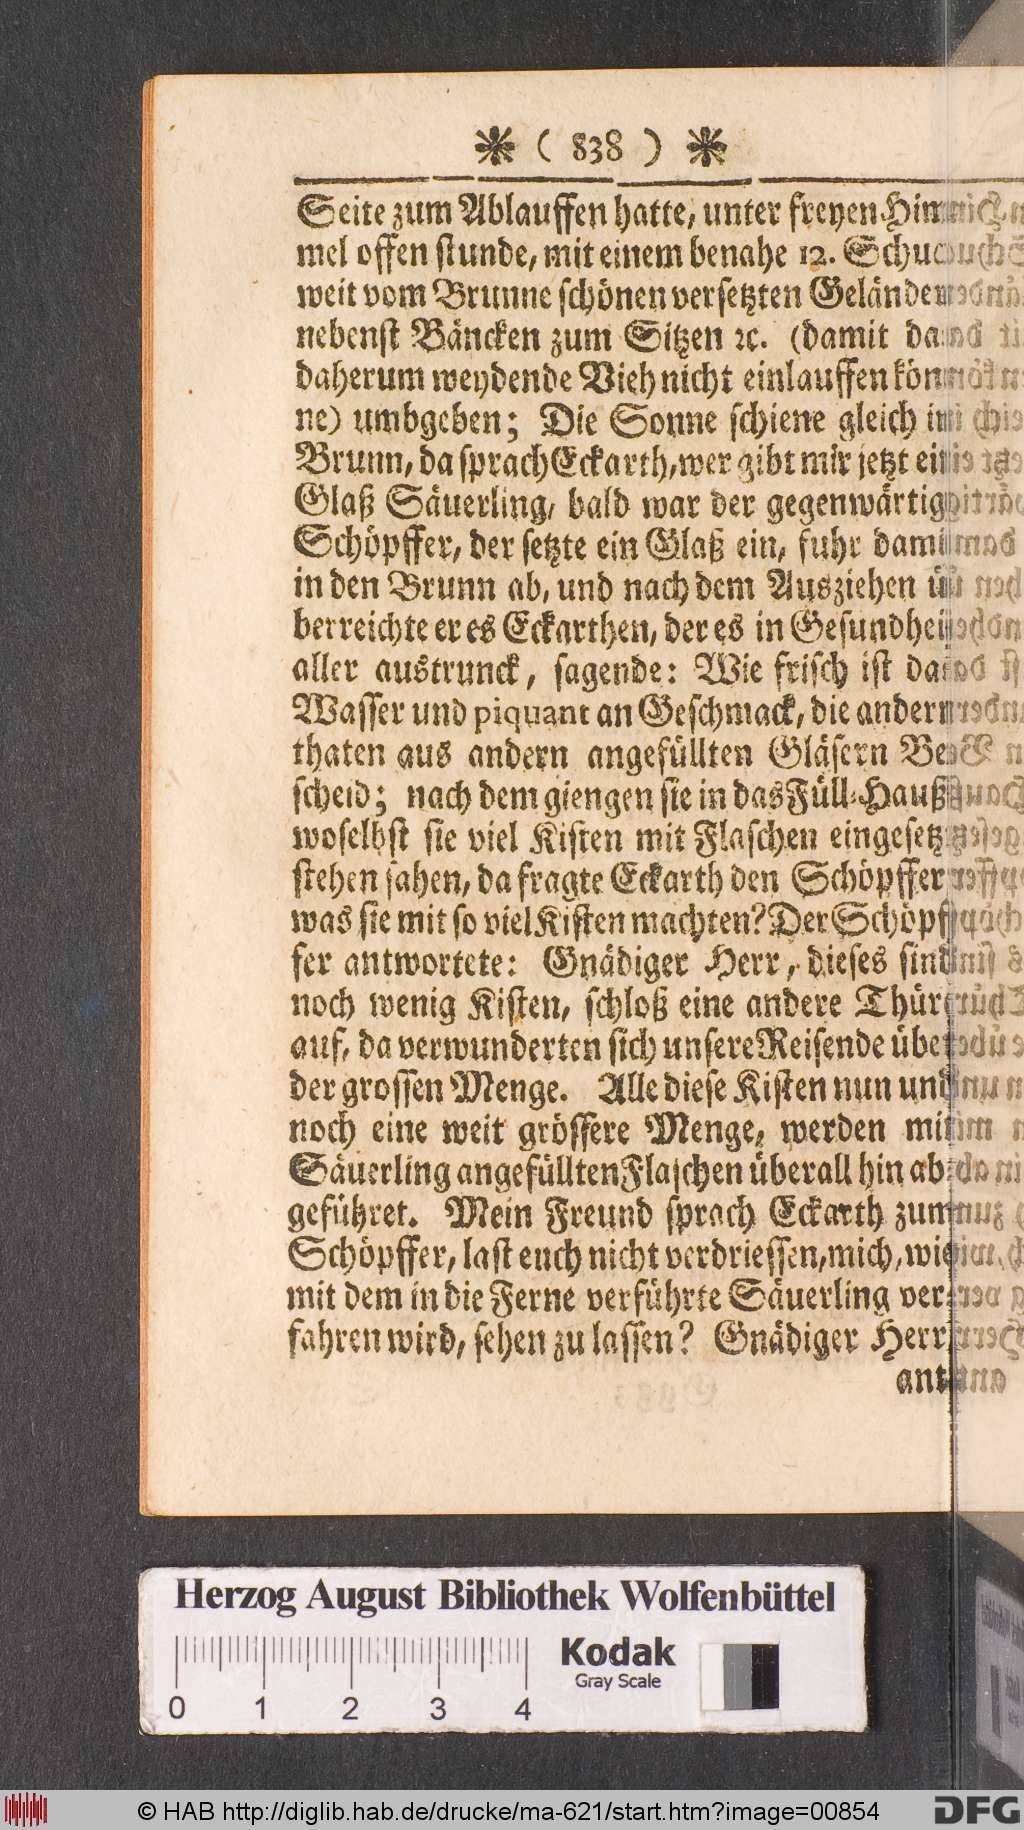 ( 838 )
Seite zum Ablauffen hatte, unter freyen Him-
mel offen stunde, mit einem benahe 12. Schuc
weit vom Brunne schönen versetzten Geländer
nebenst Bäncken zum Sitzen ꝛc. (damit da
daherum weydende Vieh nicht einlauffen kön-
ne) umbgeben; Die Sonne schiene gleich in
Brunn, da sprach Eckarth, wer gibt mir jetzt ein
Glaß Säuerling, bald war der gegenwärtig
Schöpffer, der setzte ein Glaß ein, fuhr dami
in den Brunn ab, und nach dem Ausziehen ü
berreichte er es Eckarthen, der es in Gesundhei
aller austrunck, sagende: Wie frisch ist da
Wasser und piquant an Geschmack, die andern
thaten aus andern angefüllten Gläsern Be-
scheid; nach dem giengen sie in das Füll-Hauß
woselbst sie viel Kisten mit Flaschen eingesetz
stehen sahen, da fragte Eckarth den Schöpffer
was sie mit so viel Kisten machten? Der Schöpf-
fer antwortete: Gnädiger Herr, dieses sind
noch wenig Kisten, schloß eine andere Thür
auf, da verwunderten sich unsere Reisende über
der grossen Menge. Alle diese Kisten nun und
noch eine weit grössere Menge, werden mit
Säuerling angefüllten Flaschen überall hin ab-
geführet. Mein Freund sprach Eckarth zum
Schöpffer, last euch nicht verdriessen, mich, wie
mit dem in die Ferne verführte Säuerling ver-
fahren wird, sehen zu lassen? Gnädiger Herr,
ant-
Herzog August Bibliothek Wolfenbüttel
Kodak
Gray Scale
0 1 2 3 4
© HAB http://diglib.hab.de/drucke/ma-621/start.htm?image=00854
DFG